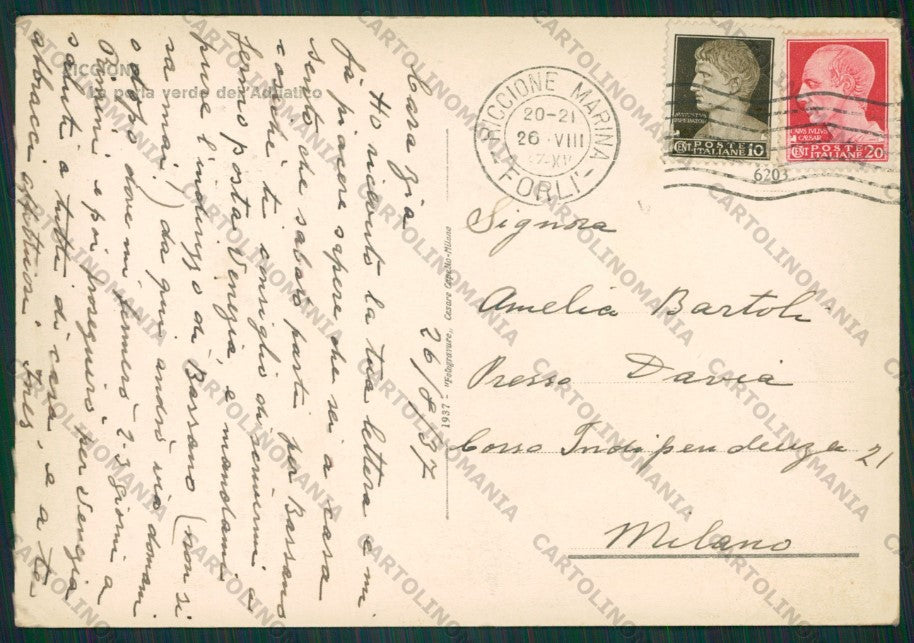 RICCIONE
La perla verde dell'Adriatico
26/8/37
Cara Gia
Ho ricevuto la tua lettera e mi
fa piacere sapere che sei a casa
sento che sabato parti per Bassano
così che ti consiglio di scrivermi a
fermo posta Venezia, e mandami
pure l'indirizzo di Bassano (non si
sa mai) da qui andrò via domani
o dopo dove mi fermerò 2-3 giorni a
Rimini e poi proseguirò per Venezia
saluti a tutti di casa e a te
abbracci affettuosi.
1937 - "Fotogravure" Cesare Capello-Milano
RICCIONE MARINA
20-21
26·VIII
37-XV
(FORLI')
AVGVSTVS
IMPERATOR
CENT. POSTE ITALIANE 10
CAIVS IVLIVS
CAESAR
CENT. POSTE ITALIANE 20
6203
Signora
Amelia Bartoli
Presso Davia
Corso Indipendenza 21
Milano
CARTOLINOMANIA